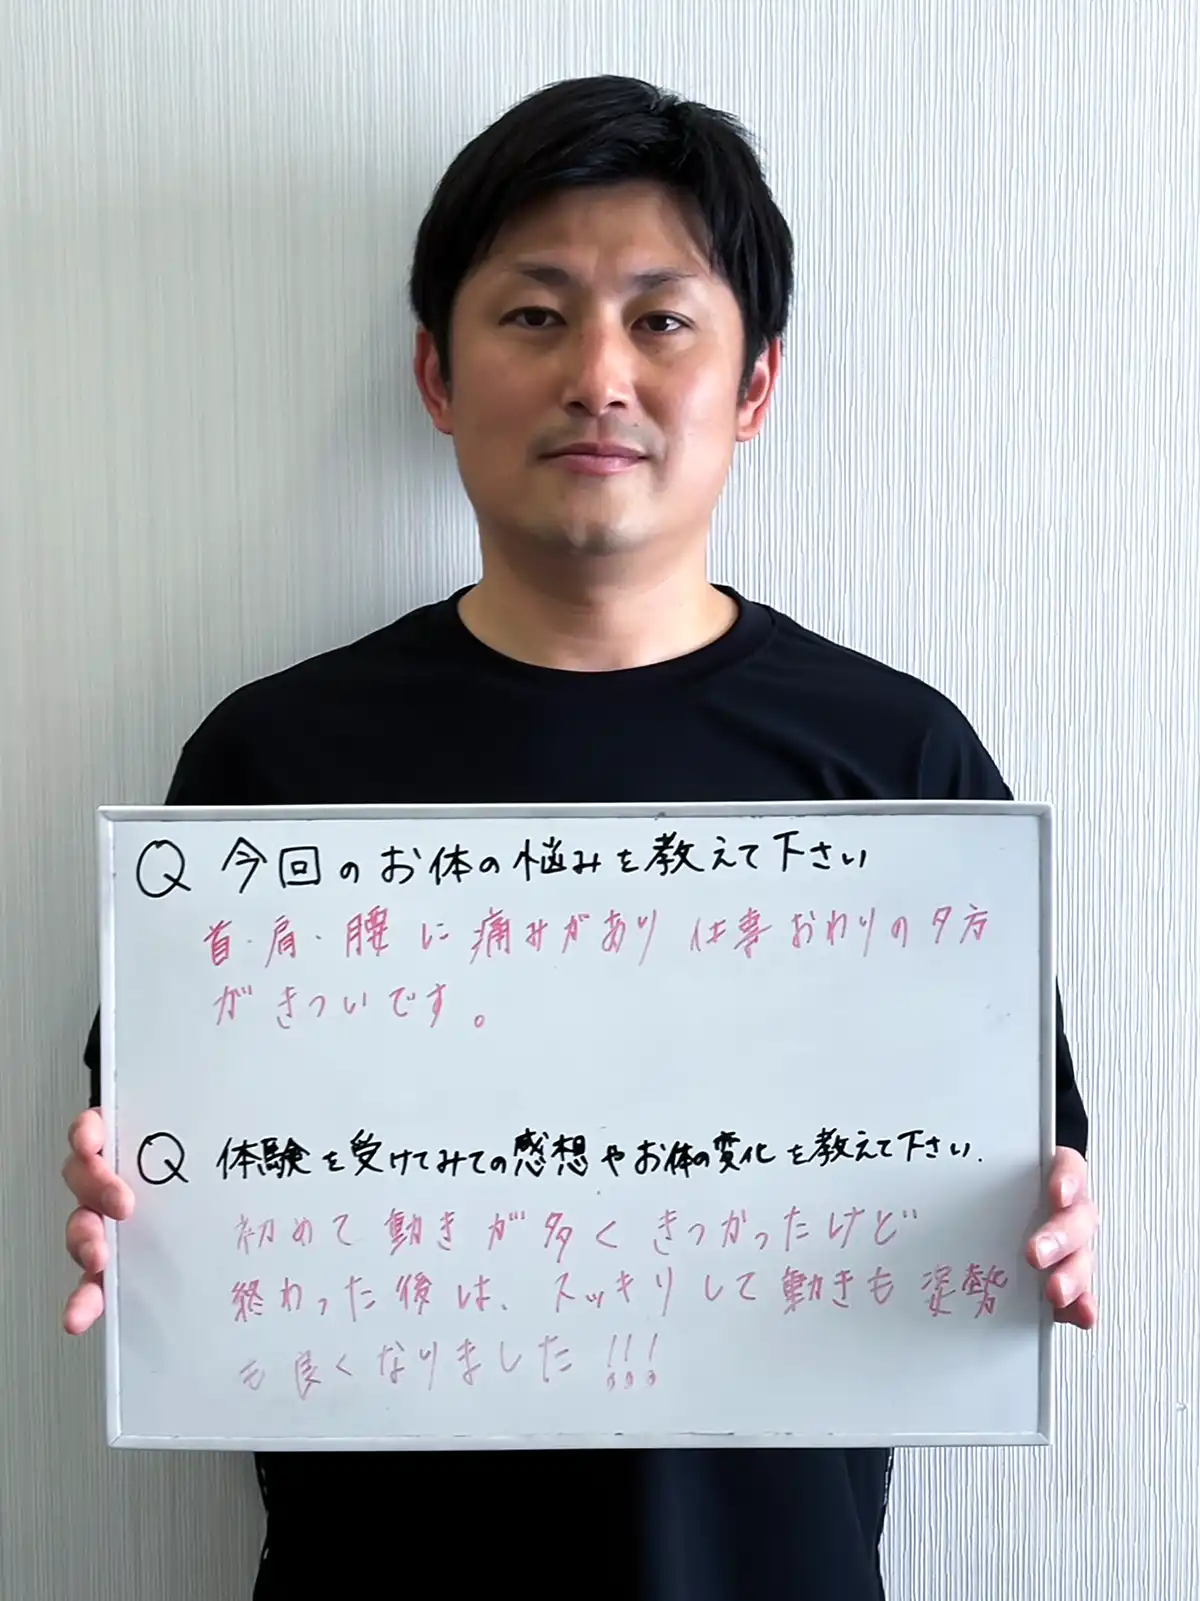 Q 今回のお体の悩みを教えて下さい
首・肩・腰に痛みがあり仕事おわりの夕方
がきついです。
Q 体験を受けてみての感想やお体の変化を教えて下さい.
初めて動きが多くきつかったけど
終わった後は、スッキリして動きも姿勢
も良くなりました!!!